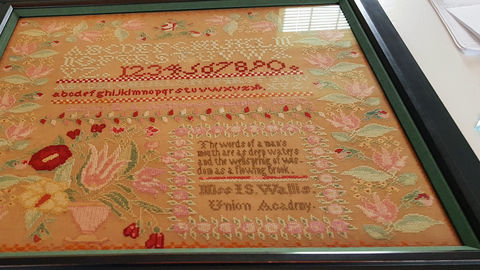 ABCDEFGHIJKLM
NOPQRSTUVWXYZ
1234567890
abcdefghijklmnopqrstuvwxyz
The words of a man's
mouth are as deep waters
and the wellspring of wis
dom as a flowing brook.
Miss I.S. Wallis
Union Academy.